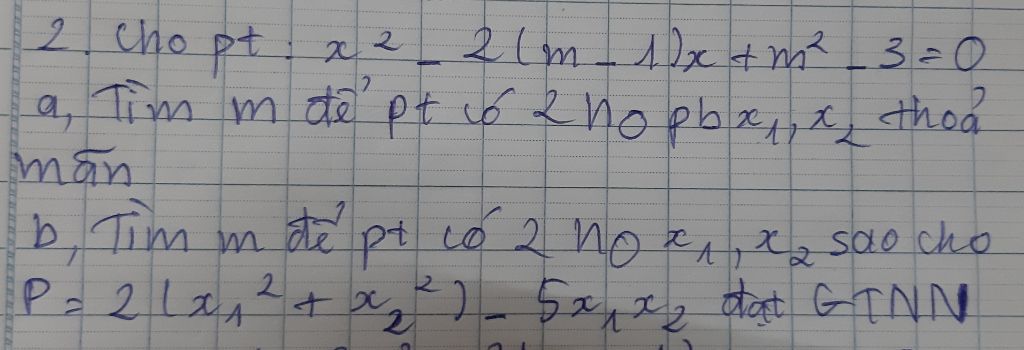 2. Cho pt: x² - 2(m - 1)x + m² - 3 = 0
a, Tìm m để pt có 2 no pb x₁, x₂ thoả
mãn
b, Tìm m để pt có 2 no x₁, x₂ sao cho
P = 2(x₁² + x₂²) - 5x₁x₂ đạt GTNN